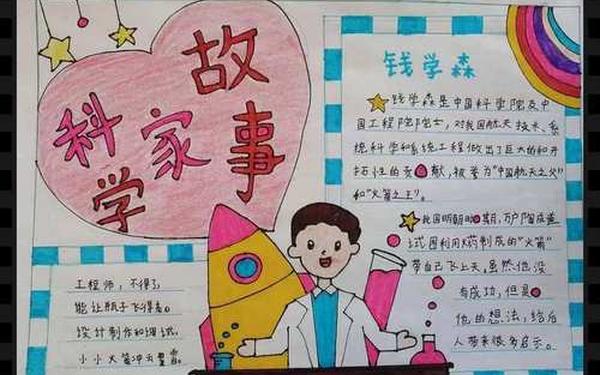 科学家故事
钱学森
钱学森是中国科学院及中
国工程院院士，对我国航天技术、系
统科学和系统工程做出了巨大的和开
拓性的贡献，被誉为"中国航天之父"
和"火箭之王"。
我国明朝时期，万户陶成道
试图利用火药制成的"火箭"
带自己飞上天，虽然他没
有成功，但是
他的想法，给后
人带来很多启示。
工程师，不得了，
能让瓶子飞得高。
设计制作和调试，
小小火箭冲云霄。